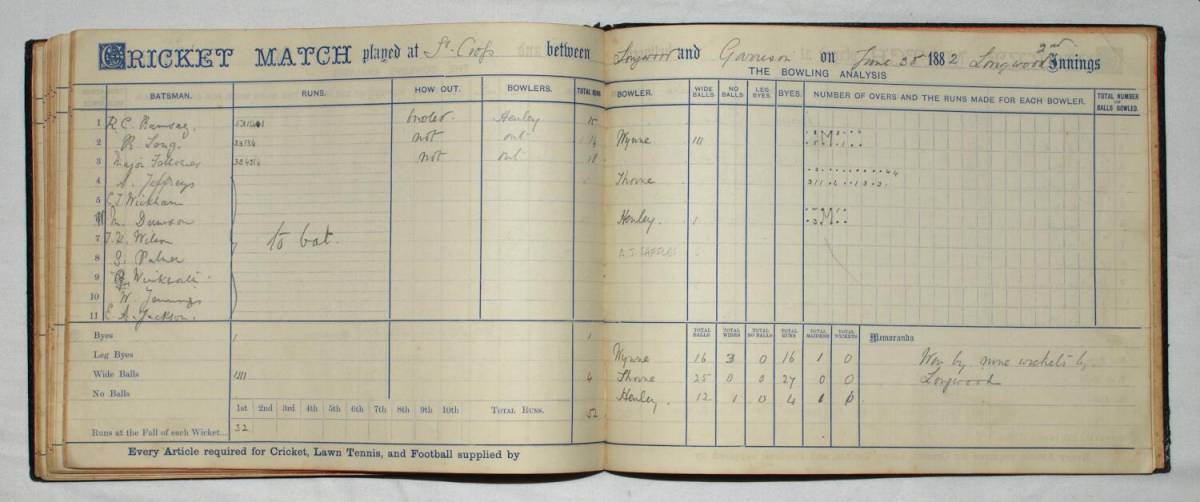 CRICKET MATCH played at St. Cross between Longwood and Garrison on June 28 1882 Longwood 2nd Innings
THE BOWLING ANALYSIS
BATSMAN. RUNS. HOW OUT. BOWLERS. TOTAL RUNS
BOWLER. WIDE BALLS. NO BALLS LEG BYES. BYES. NUMBER OF OVERS AND THE RUNS MADE FOR EACH BOWLER. TOTAL NUMBER OF BALLS BOWLED.
1 R. C. Ramsay. Henley 15
2 R. Long. 23134 not out 14
3 Major not out 18
4 A. Jeffreys
5 C. T. Wickham
Dawson
7 Wilson to bat.
8 Palmer
9
10 W. Jennings
11 E. A. Jackson.
Wynne 111 M
Thorne
Henley. 1 M
A. J. RAFFLES
Byes 1 1
Leg Byes
Wide Balls 1111 4
No Balls
1st 2nd 3rd 4th 5th 6th 7th 8th 9th 10th TOTAL RUNS. 52
Runs at the Fall of each Wicket... 32
TOTAL BALLS TOTAL WIDES TOTAL NO BALLS TOTAL RUNS TOTAL MAIDENS TOTAL WICKETS Memoranda
Wynne 16 3 0 16 1 0 Won by nine wickets by
Thorne 25 0 0 27 0 0 Longwood
Henley. 12 1 0 4 1 0
Every Article required for Cricket, Lawn Tennis, and Football supplied by